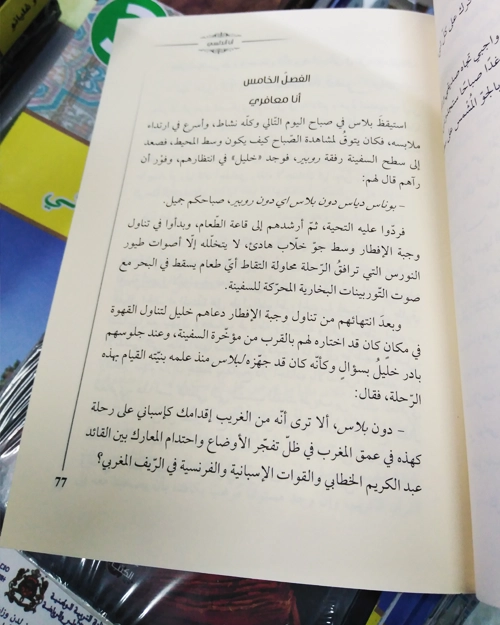 الفصل الخامس
أنا معافري
استيقظَ بلاس في صباح اليوم التّالي وكلّه نشاط، وأسرع في ارتداء
ملابسه، فكان يتوقُ لمشاهدة الصّباح كيف يكون وسط المحيط، فصعد
إلى سطح السفينة رفقة روبير، فوجد «خليل» في انتظارهم، وفوْر أن
رآهم قال لهم:
– بوناس دياس دون بلاس اي دون روبير، صباحكم جميل.
فردّوا عليه التحية، ثمّ أرشدهم إلى قاعة الطّعام، وبدأوا في تناول
وجبة الإفطار وسط جوّ خلّاب هادئ، لا يتخلّله إلّا أصوات طيور
النورس التي ترافقُ الرّحلة محاولة التقاط أيّ طعام يسقط في البحر مع
صوت التّوربينات البخارية المحرّكة للسفينة.
وبعدَ انتهائهم من تناول وجبة الإفطار دعاهم خليل لتناول القهوة
في مكانٍ كان قد اختاره لهم بالقرب من مؤخّرة السفينة، وعند جلوسهم
بادر خليلُ بسؤالٍ وكأنّه كان قد جهّزه لبلاس منذ علمه بنيّته القيام بهذه
الرّحلة، فقال:
– دون بلاس، ألا ترى أنّه من الغريب إقدامك كإسباني على رحلة
كهذه في عمق المغرب في ظلّ تفجّر الأوضاع واحتدام المعارك بين القائد
عبد الكريم الخطابي والقوات الإسبانية والفرنسية في الرّيف المغربي؟
77